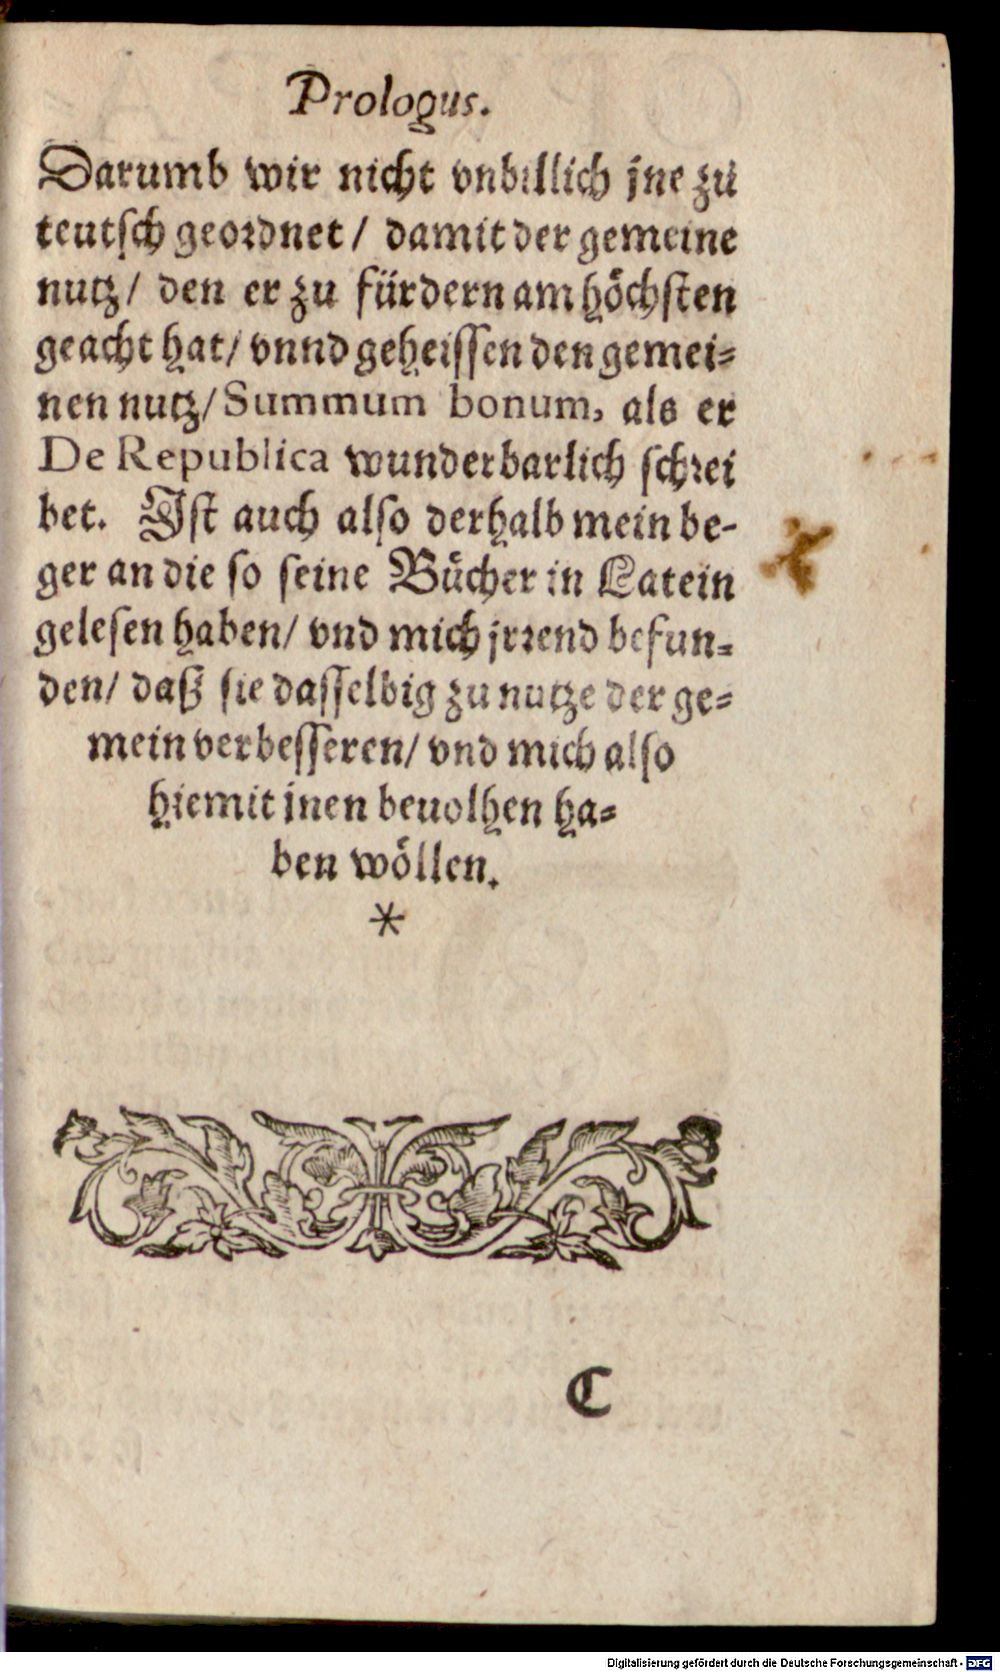 Prologus.
Darumb wir nicht vnbillich jne zů
teutsch geordnet / damit der gemeine
nutz / den er zu fürdern am höchsten
geacht hat / vnnd geheissen den gemei=
nen nutz / Summum bonum, als er
De Republica wunderbarlich schrei
bet. Ist auch also derhalb mein be-
ger an die so seine Bücher in Latein
gelesen haben / vnd mich jrrend befun=
den / daß sie dasselbig zu nutze der ge=
mein verbesseren / vnd mich also
hiemit jnen beuolhen ha=
ben wöllen.
*
C
Digitalisierung gefördert durch die Deutsche Forschungsgemeinschaft - DFG